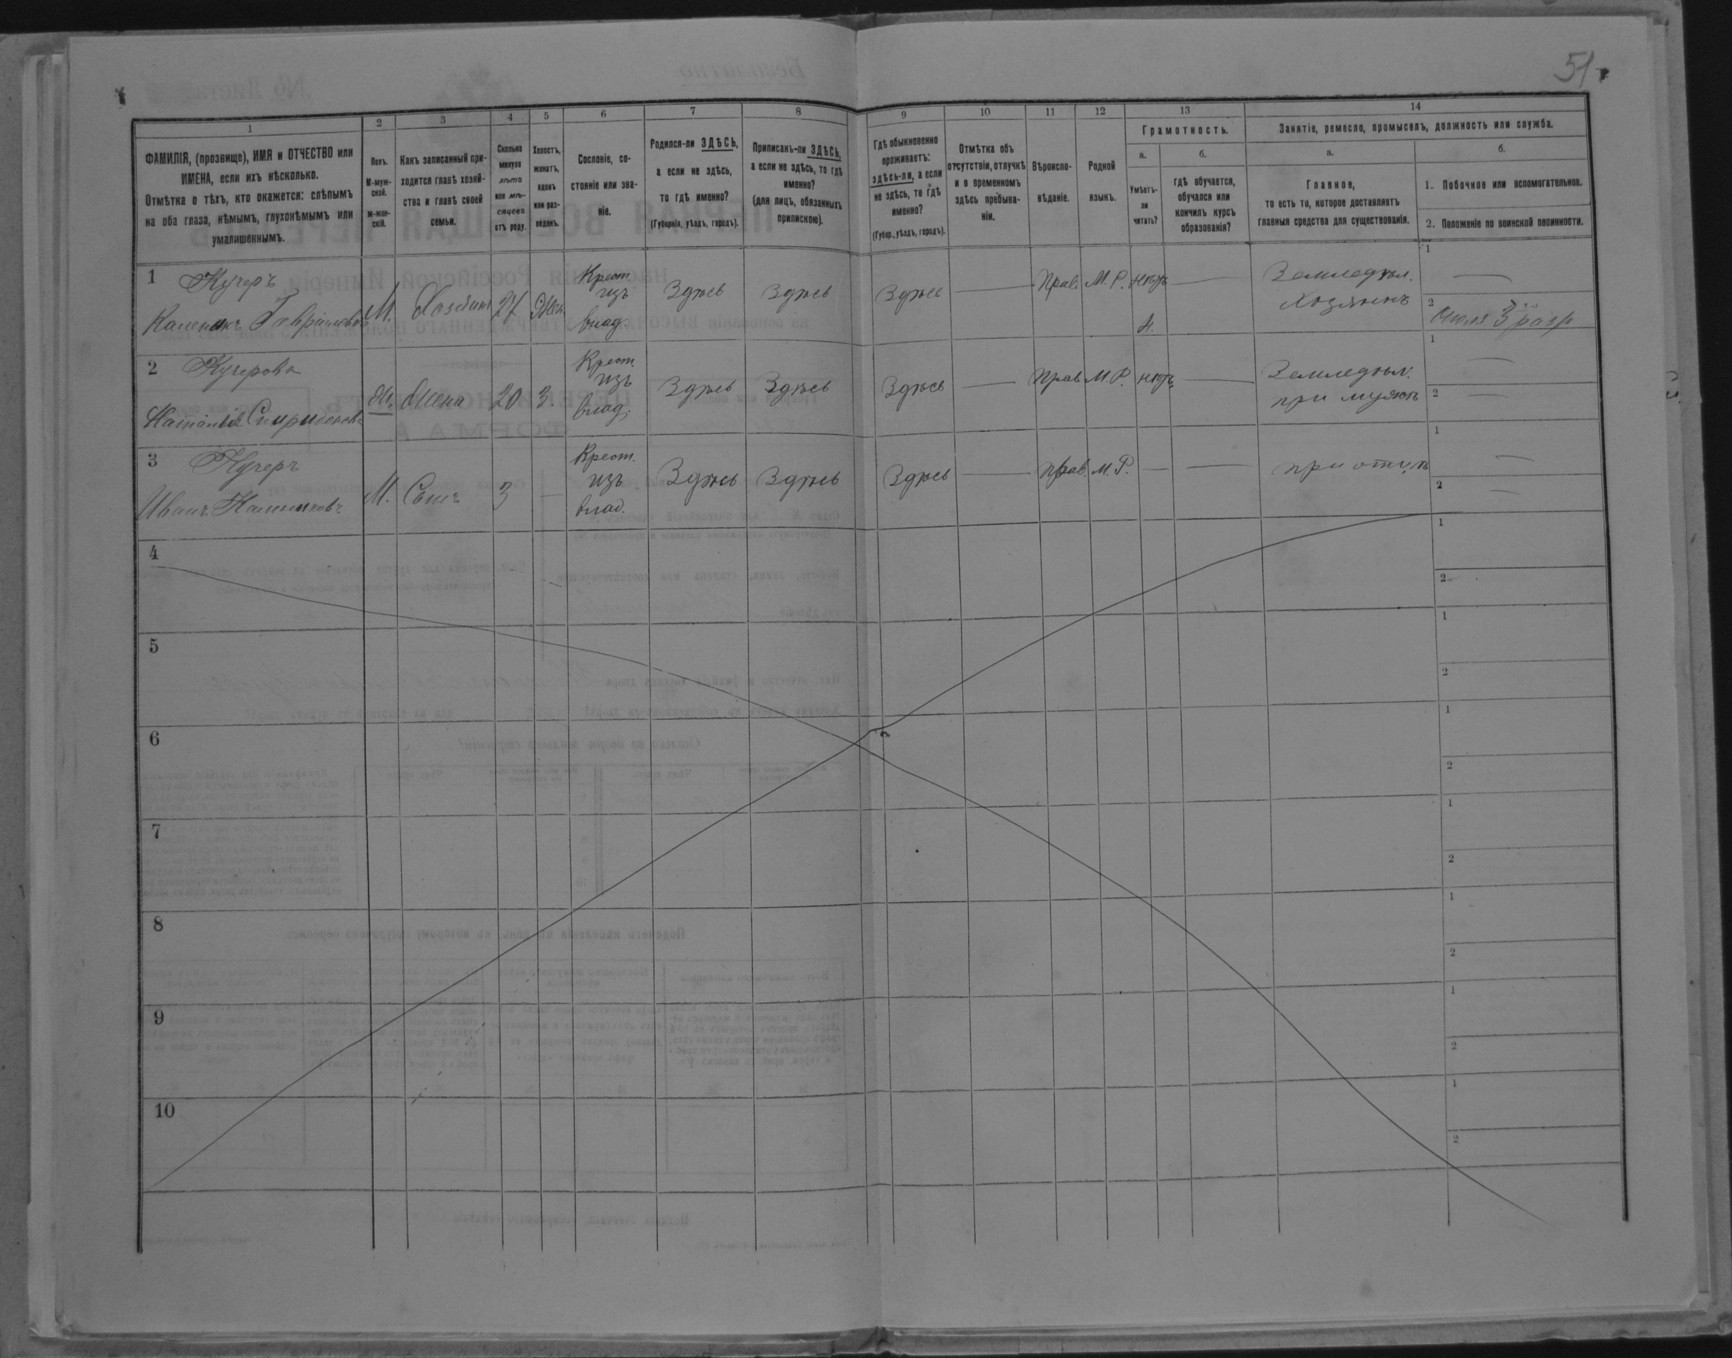 51
1 2 3 4 5 6 7 8 9 10 11 12 13 14
ФАМИЛІЯ, (прозвище), ИМЯ и ОТЧЕСТВО или
ИМЕНА, если ихъ нѣсколько.
Отмѣтка о тѣхъ, кто окажется: слѣпымъ
на оба глаза, нѣмымъ, глухонѣмымъ или
умалишеннымъ.
Полъ.
М-муж-
ской.
Ж-жен-
скій.
Какъ записанный при-
ходится главѣ хозяй-
ства и главѣ своей
семьи.
Сколько
минуло
лѣтъ
или мѣ-
сяцевъ
отъ роду.
Холостъ,
женатъ,
вдовъ
или раз-
веденъ.
Сословіе, со-
стояніе или зва-
ніе.
Родился-ли ЗДѢСЬ,
а если не здѣсь,
то гдѣ именно?
(Губернія, уѣздъ, городъ).
Приписанъ-ли ЗДѢСЬ,
а если не здѣсь, то гдѣ
именно?
(для лицъ, обязанныхъ
припискою).
Гдѣ обыкновенно
проживаетъ:
здѣсь-ли, а если
не здѣсь, то гдѣ
именно?
(Губер., уѣздъ, городъ).
Отмѣтка объ
отсутствіи, отлучкѣ
и о временномъ
здѣсь пребыва-
ніи.
Вѣроиспо-
вѣданіе.
Родной
языкъ.
Грамотность.
а.
Умѣетъ-
ли
читать?
б.
гдѣ обучается,
обучался или
кончилъ курсъ
образованія?
Занятіе, ремесло, промыселъ, должность или служба.
а.
Главное,
то есть то, которое доставляетъ
главныя средства для существованія.
б.
1. Побочное или вспомогательное.
2. Положеніе по воинской повинности.
1 Кучеръ
Каленикъ Гавріиловъ
М. Хозяинъ 27 Жен.
Крест.
изъ
влад.
Здѣсь Здѣсь Здѣсь — Прав. М. Р. нѣтъ —
Земледѣл.
Хозяинъ
1 —
2
2 Кучерова
Наталія Спиридонов.
Ж. Жена 20 З.
Крест.
изъ
влад.
Здѣсь Здѣсь Здѣсь — Прав. М. Р. нѣтъ —
Земледѣл.
при мужѣ
1 —
2 —
3 Кучеръ
Иванъ Калениковъ
М. Сынъ 3 —
Крест.
изъ
влад.
Здѣсь Здѣсь Здѣсь — Прав. М. Р. — —
при отцѣ
1 —
2 —
4 1
2
5 1
2
6 1
2
7 1
2
8 1
2
9 1
2
10 1
2